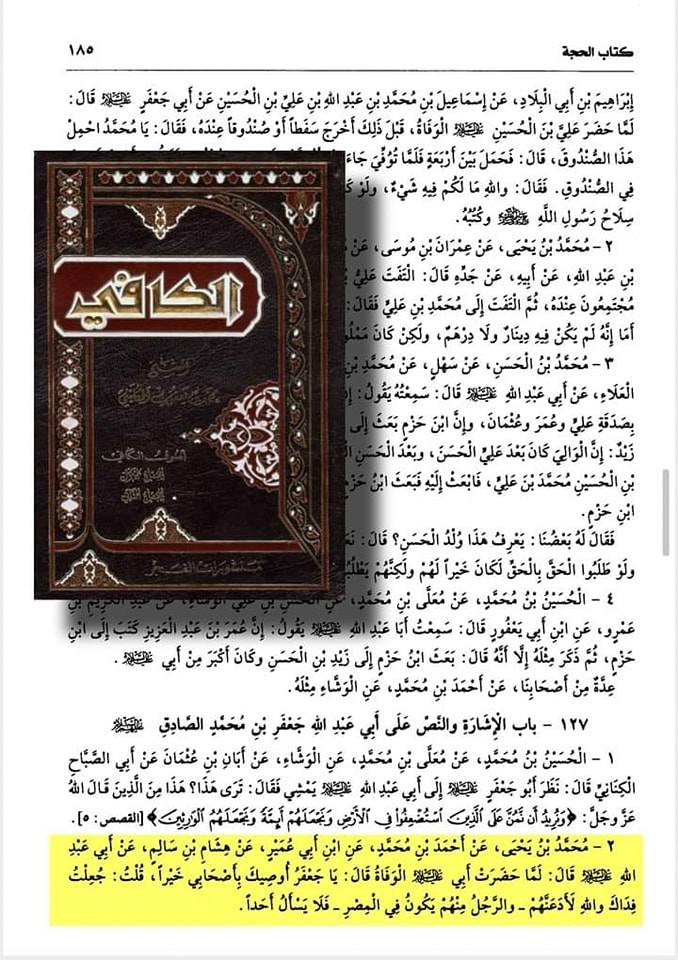 كتاب الحجة
١٨٥
إِبْرَاهِيمَ بْنِ أَبِي الْبِلَادِ، عَنْ إِسْمَاعِيلَ بْنِ مُحَمَّدِ بْنِ عَبْدِ اللهِ بْنِ عَلِيِّ بْنِ الْحُسَيْنِ عَنْ أَبِي جَعْفَرٍ عليه السلام قَالَ:
لَمَّا حَضَرَ عَلِيَّ بْنَ الْحُسَيْنِ عليه السلام الْوَفَاةُ، قَبْلَ ذَلِكَ أَخْرَجَ سَفَطاً أَوْ صُنْدُوقاً عِنْدَهُ، فَقَالَ: يَا مُحَمَّدُ احْمِلْ
هَذَا الصُّنْدُوقَ، قَالَ: فَحَمَلَ بَيْنَ أَرْبَعَةٍ فَلَمَّا تُوُفِّيَ جَاءَ
فِي الصُّنْدُوقِ. فَقَالَ: وَاللهِ مَا لَكُمْ فِيهِ شَيْءٌ، وَلَوْ
سِلَاحُ رَسُولِ اللَّهِ وَكُتُبُهُ.
٢ - مُحَمَّدُ بْنُ يَحْيَى، عَنْ عِمْرَانَ بْنِ مُوسَى، عَنْ
بْنِ عَبْدِ اللهِ، عَنْ أَبِيهِ، عَنْ جَدِّهِ قَالَ: الْتَفَتَ عَلِيُّ
مُجْتَمِعُونَ عِنْدَهُ، ثُمَّ الْتَفَتَ إِلَى مُحَمَّدِ بْنِ عَلِيٍّ فَقَالَ:
أَمَا إِنَّهُ لَمْ يَكُنْ فِيهِ دِينَارٌ وَلَا دِرْهَمٌ، وَلَكِنْ كَانَ
٣ - مُحَمَّدُ بْنُ الْحَسَنِ، عَنْ سَهْلٍ، عَنْ مُحَمَّدِ
الْعَلَاءِ، عَنْ أَبِي عَبْدِ اللهِ عليه السلام قَالَ: سَمِعْتُهُ يَقُولُ:
بِصَدَقَةِ عَلِيٍّ وَعُمَرَ وَعُثْمَانَ، وَإِنَّ ابْنَ حَزْمٍ بَعَثَ إِلَى
زَيْدٌ: إِنَّ الْوَالِيَ كَانَ بَعْدَ عَلِيٍّ الْحَسَنَ، وَبَعْدَ الْحَسَنِ
بْنِ الْحُسَيْنِ مُحَمَّدَ بْنَ عَلِيٍّ، فَابْعَثْ إِلَيْهِ فَبَعَثَ ابْنُ حَزْمٍ
ابْنِ حَزْمٍ.
فَقَالَ لَهُ بَعْضُنَا: يَعْرِفُ هَذَا وُلْدُ الْحَسَنِ؟ قَالَ:
وَلَوْ طَلَبُوا الْحَقَّ بِالْحَقِّ لَكَانَ خَيْراً لَهُمْ وَلَكِنَّهُمْ
٤ - الْحُسَيْنُ بْنُ مُحَمَّدٍ، عَنْ مُعَلَّى بْنِ مُحَمَّدٍ، عَنِ الْحَسَنِ بْنِ عَلِيٍّ الْوَشَّاءِ، عَنْ عَبْدِ الْكَرِيمِ بْنِ
عَمْرٍو، عَنِ ابْنِ أَبِي يَعْفُورٍ قَالَ: سَمِعْتُ أَبَا عَبْدِ اللهِ عليه السلام يَقُولُ: إِنَّ عُمَرَ بْنَ عَبْدِ الْعَزِيزِ كَتَبَ إِلَى ابْنِ
حَزْمٍ، ثُمَّ ذَكَرَ مِثْلَهُ إِلَّا أَنَّهُ قَالَ: بَعَثَ ابْنُ حَزْمٍ إِلَى زَيْدِ بْنِ الْحَسَنِ وَكَانَ أَكْبَرَ مِنْ أَبِي عليه السلام.
عِدَّةٌ مِنْ أَصْحَابِنَا، عَنْ أَحْمَدَ بْنِ مُحَمَّدٍ، عَنِ الْوَشَّاءِ مِثْلَهُ.
١٢٧ - باب الْإِشَارَةِ والنَّصِّ عَلَى أَبِي عَبْدِ اللهِ جَعْفَرِ بْنِ مُحَمَّدٍ الصَّادِقِ عليه السلام
١ - الْحُسَيْنُ بْنُ مُحَمَّدٍ، عَنْ مُعَلَّى بْنِ مُحَمَّدٍ، عَنِ الْوَشَّاءِ، عَنْ أَبَانِ بْنِ عُثْمَانَ عَنْ أَبِي الصَّبَّاحِ
الْكِنَانِيِّ قَالَ: نَظَرَ أَبُو جَعْفَرٍ عليه السلام إِلَى أَبِي عَبْدِ اللهِ عليه السلام يَمْشِي فَقَالَ: تَرَى هَذَا؟ هَذَا مِنَ الَّذِينَ قَالَ اللهُ
عَزَّ وَجَلَّ: ﴿وَنُرِيدُ أَن نَّمُنَّ عَلَى الَّذِينَ اسْتُضْعِفُوا فِي الْأَرْضِ وَنَجْعَلَهُمْ أَئِمَّةً وَنَجْعَلَهُمُ الْوَارِثِينَ﴾ [القصص: ٥].
٢ - مُحَمَّدُ بْنُ يَحْيَى، عَنْ أَحْمَدَ بْنِ مُحَمَّدٍ، عَنِ ابْنِ أَبِي عُمَيْرٍ، عَنْ هِشَامِ بْنِ سَالِمٍ، عَنْ أَبِي عَبْدِ
اللهِ عليه السلام قَالَ: لَمَّا حَضَرَتْ أَبِي عليه السلام الْوَفَاةُ قَالَ: يَا جَعْفَرُ أُوصِيكَ بِأَصْحَابِي خَيْراً، قُلْتُ: جُعِلْتُ
فِدَاكَ وَاللهِ لَأَدَعَنَّهُمْ - وَالرَّجُلُ مِنْهُمْ يَكُونُ فِي الْمِصْرِ - فَلَا يَسْأَلُ أَحَداً.
الكافي